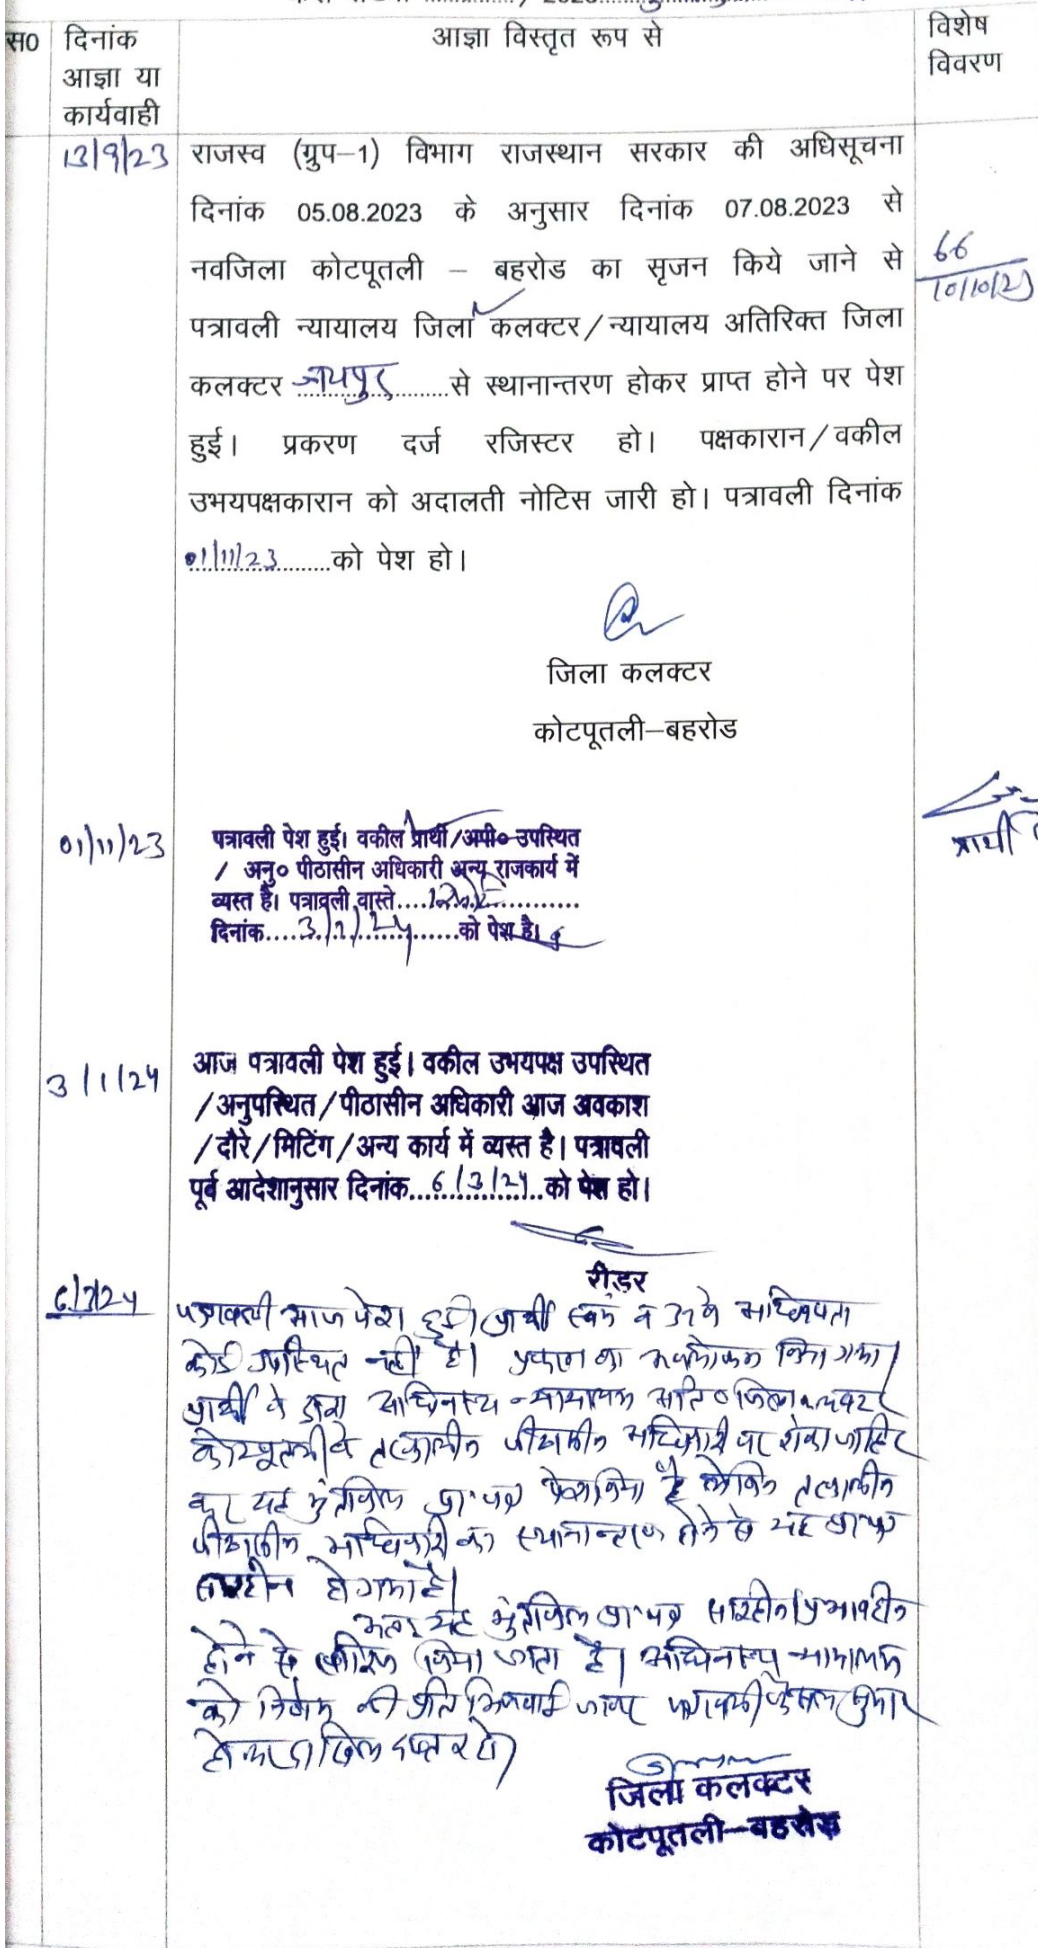 स0 दिनांक आज्ञा या कार्यवाही
आज्ञा विस्तृत रूप से
विशेष विवरण
13/9/23
राजस्व (ग्रुप–1) विभाग राजस्थान सरकार की अधिसूचना
दिनांक 05.08.2023 के अनुसार दिनांक 07.08.2023 से
नवजिला कोटपूतली – बहरोड का सृजन किये जाने से
पत्रावली न्यायालय जिला कलक्टर/न्यायालय अतिरिक्त जिला
कलक्टर जयपुर से स्थानान्तरण होकर प्राप्त होने पर पेश
हुई। प्रकरण दर्ज रजिस्टर हो। पक्षकारान/वकील
उभयपक्षकारान को अदालती नोटिस जारी हो। पत्रावली दिनांक
01/11/23 को पेश हो।
66
10/10/23
जिला कलक्टर
कोटपूतली–बहरोड
01/11/23
पत्रावली पेश हुई। वकील प्रार्थी/अपी० उपस्थित
/ अनु० पीठासीन अधिकारी अन्य राजकार्य में
व्यस्त है। पत्रावली वास्ते
दिनांक 3/1/24 को पेश है।
प्रार्थी
3/1/24
आज पत्रावली पेश हुई। वकील उभयपक्ष उपस्थित
/अनुपस्थित/पीठासीन अधिकारी आज अवकाश
/दौरे/मिटिंग/अन्य कार्य में व्यस्त है। पत्रावली
पूर्व आदेशानुसार दिनांक 6/3/24 को पेश हो।
रीडर
6/3/24
पत्रावली आज पेश हुई। प्रार्थी स्वयं व उनके अधिवक्ता
कोई उपस्थित नहीं है। प्रकरण का अवलोकन किया गया।
प्रार्थी के द्वारा अधिनस्थ न्यायालय अति० जिला कलक्टर
कोटपूतली के तत्कालीन पीठासीन अधिकारी पर शंका जाहिर
कर यह मुंतकिल प्रा० पत्र पेश किया है लेकिन तत्कालीन
पीठासीन अधिकारी का स्थानान्तरण होने से यह प्रा० पत्र
सारहीन हो गया है।
अतः यह मुंतकिल प्रा० पत्र सारहीन/प्रभावहीन
होने से खारिज किया जाता है। अधिनस्थ न्यायालय
को निर्णय की प्रति भिजवाई जावे। पत्रावली फैसल शुमार
होकर दाखिल दफ्तर हो।
जिला कलक्टर
कोटपूतली–बहरोड